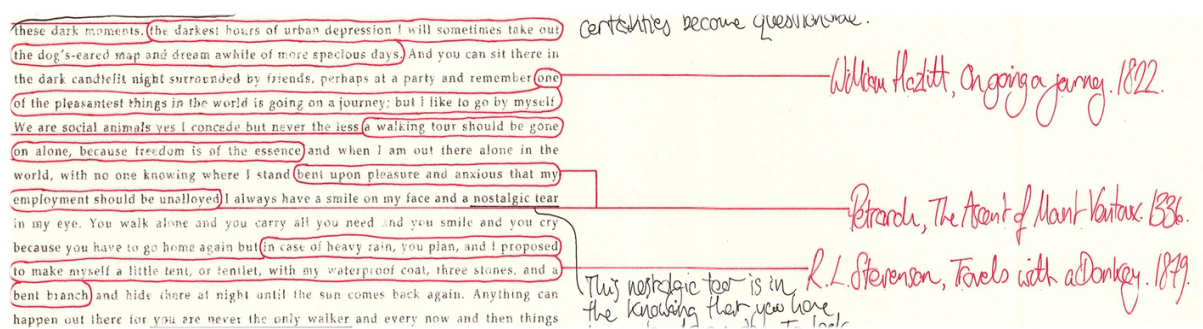 these dark moments, the darkest hours of urban depression I will sometimes take out
the dog's-eared map and dream awhile of more spacious days. And you can sit there in
the dark candlelit night surrounded by friends, perhaps at a party and remember one
of the pleasantest things in the world is going on a journey; but I like to go by myself
We are social animals yes I concede but never the less a walking tour should be gone
on alone, because freedom is of the essence and when I am out there alone in the
world, with no one knowing where I stand bent upon pleasure and anxious that my
employment should be unalloyed I always have a smile on my face and a nostalgic tear
in my eye. You walk alone and you carry all you need and you smile and you cry
because you have to go home again but in case of heavy rain, you plan, and I proposed
to make myself a little tent, or tentlet, with my waterproof coat, three stones, and a
bent branch and hide there at night until the sun comes back again. Anything can
happen out there for you are never the only walker and every now and then things
certainties become questionable.
William Hazlitt, On going a journey. 1822.
Petrarch, The Ascent of Mount Ventoux. 1336.
R.L. Stevenson, Travels with a Donkey. 1879.
This nostalgic tear is in
the knowing that you have